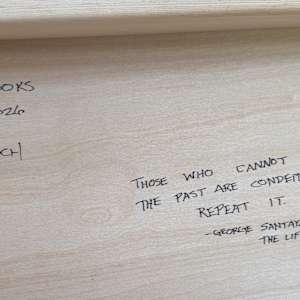 OOKS
026
CH
THOSE WHO CANNOT
THE PAST ARE CONDEM
REPEAT IT.
-GEORGE SANTAY
THE LIF